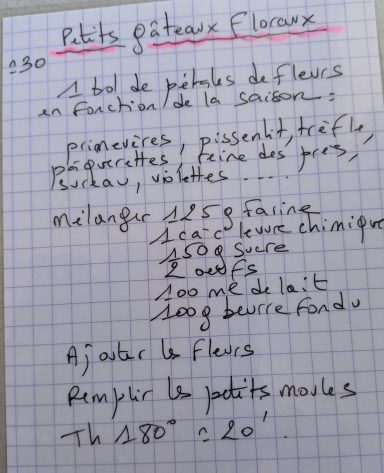 Petits gâteaux Floraux
≃30
1 bol de pétales de fleurs
en fonction de la saison :
primevères, pissenlit, trèfle,
pâquerettes, reine des prés,
sureau, violettes .....
Mélanger 125g farine
1 càc levure chimique
150g sucre
2 oeufs
100 ml de lait
100g beurre fondu
Ajouter les fleurs
Remplir les petits moules
Th 180° ≃ 20'.